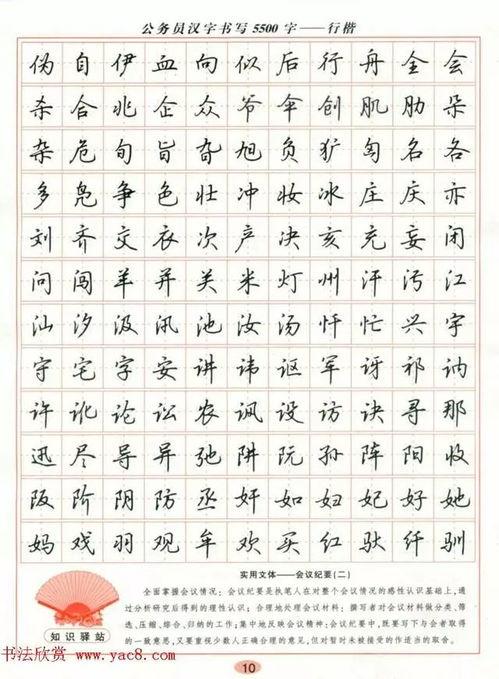 公务员汉字书写5500字——行楷
伪自伊血向似后行舟全会
杀合兆企众爷伞创肌肋朵
杂危旬旨旮旭负犷匈名各
多凫争色壮冲妆冰庄庆亦
刘齐交衣次产决亥充妄闭
问闯羊并关米灯州汗污江
汕汐汲汛池汝汤忏忙兴宇
守宅字安讲讳讴军讶祁讷
许讹论讼农讽设访诀寻那
迅尽导异弛阱阮孙阵阳收
阪阶阴防丞奸如妇妃好她
妈戏羽观牟欢买红驮纤驯
实用文体——会议纪要(二)
全面掌握会议情况：会议纪要是执笔人在对整个会议情况的感性认识基础上,通
过分析研究后得到的理性认识；合理地处理会议材料：撰写者对会议材料做分类、筛
选、压缩、综合、归纳的工作；集中地反映会议精神：会议纪要中,既要写下与会者取得
的一致意见,又要重视少数人正确合理的意见,但对暂时未被接受的作适当的取舍。
知识驿站
书法欣赏 www.yac8.com
10